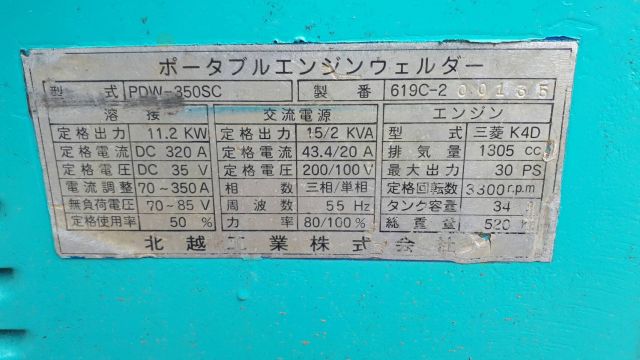 ポータブルエンジンウェルダー
型式 PDW-350SC 製番 619C-2 00135
溶接 交流電源 エンジン
定格出力 11.2 KW 定格出力 15/2 KVA 型式 三菱 K4D
定格電流 DC 320 A 定格電流 43.4/20 A 排気量 1305 cc
定格電圧 DC 35 V 定格電圧 200/100 V 最大出力 30 PS
電流調整 70~350A 相数 三相/単相 定格回転数 3300 r.p.m
無負荷電圧 70~85 V 周波数 55 Hz タンク容量 34
定格使用率 50 % 力率 80/100 % 総重量 520
北越工業株式会社